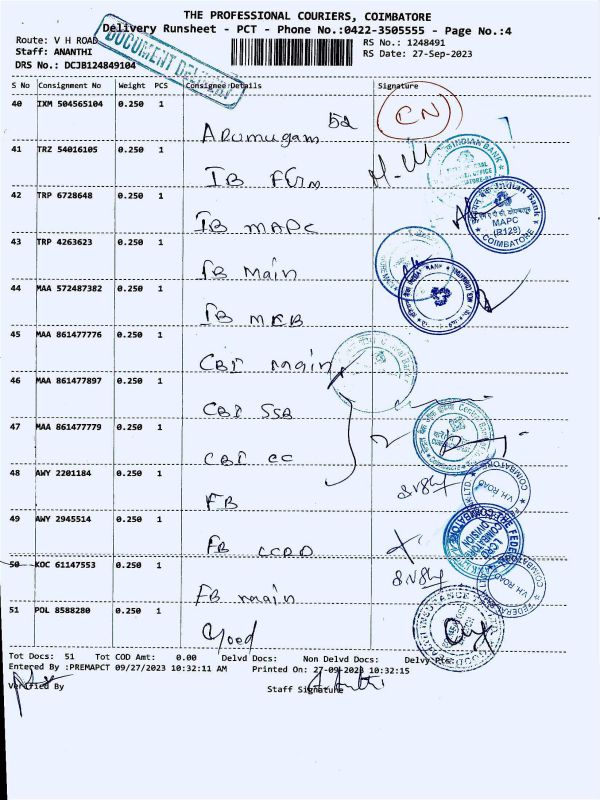 THE PROFESSIONAL COURIERS, COIMBATORE
Delivery Runsheet - PCT - Phone No.:0422-3505555 - Page No.:4
Route: V H ROAD
RS No.: 1248491
Staff: ANANTHI
RS Date: 27-Sep-2023
DRS No.: DCJB124849104
DOCUMENT DELIVERY
S No Consignment No Weight PCS Consignee Details Signature
40 IXM 504565104 0.250 1
Arumugam 52 CN
41 TRZ 54016105 0.250 1
IB
INDIAN BANK
42 TRP 6728648 0.250 1
IB MAPC
Indian Bank
MAPC
(R129)
COIMBATORE
43 TRP 4263623 0.250 1
IB Main
44 MAA 572487382 0.250 1
IB MKB
45 MAA 861477776 0.250 1
CBI main
46 MAA 861477897 0.250 1
CBI SSB
47 MAA 861477779 0.250 1
CBI CC
48 AWY 2201184 0.250 1
FB
COIMBATORE
V.H. ROAD
49 AWY 2945514 0.250 1
FB LCRD
THE FEDERAL
LCRD
DIVISION
50 KOC 61147553 0.250 1
FB main
V.H. ROAD
51 POL 8588280 0.250 1
Tot Docs: 51 Tot COD Amt: 0.00 Delvd Docs: Non Delvd Docs: Delvy Pts:
Entered By :PREMAPCT 09/27/2023 10:32:11 AM Printed On: 27-09-2023 10:32:15
Verified By
Staff Signature